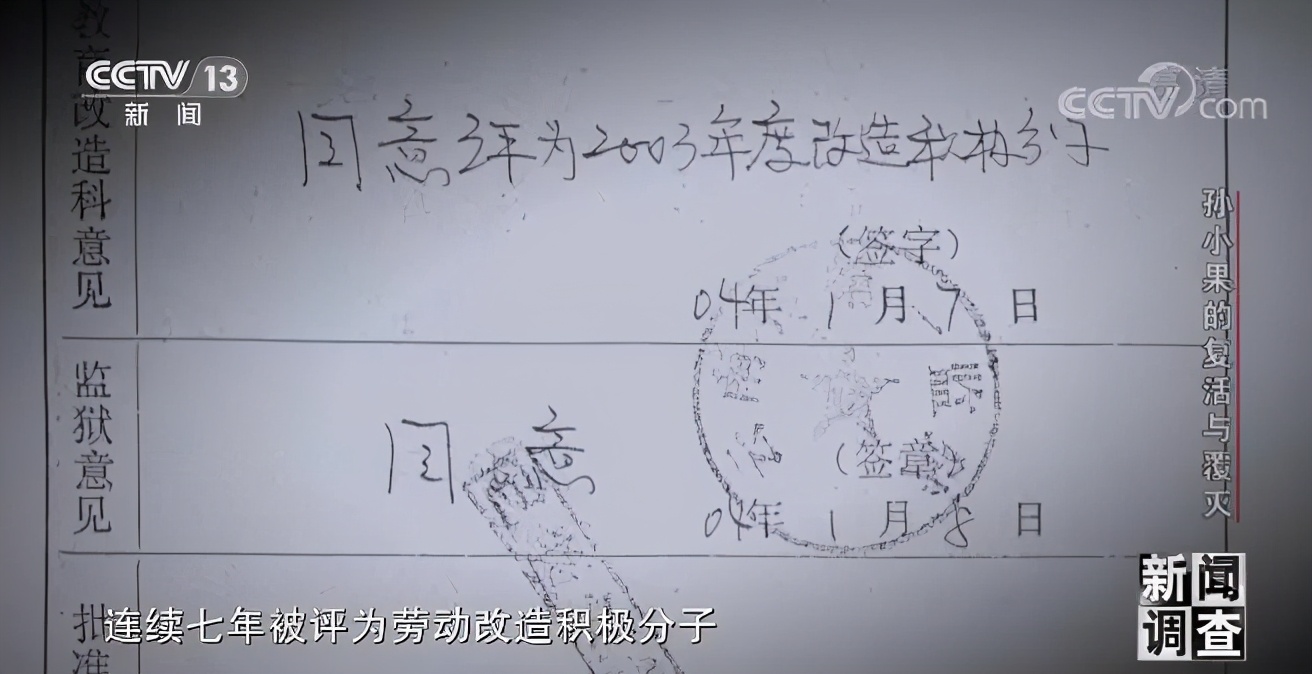 CCTV 13
新闻
高清
CCTV com
教育改造科意见
同意 年为2003年度改造积极分子
（签字）
04年 1月 7日
监狱意见
同意
（签章）
04年 1月 8日
批准
连续七年被评为劳动改造积极分子
孙小果的复活与覆灭
新闻
调查